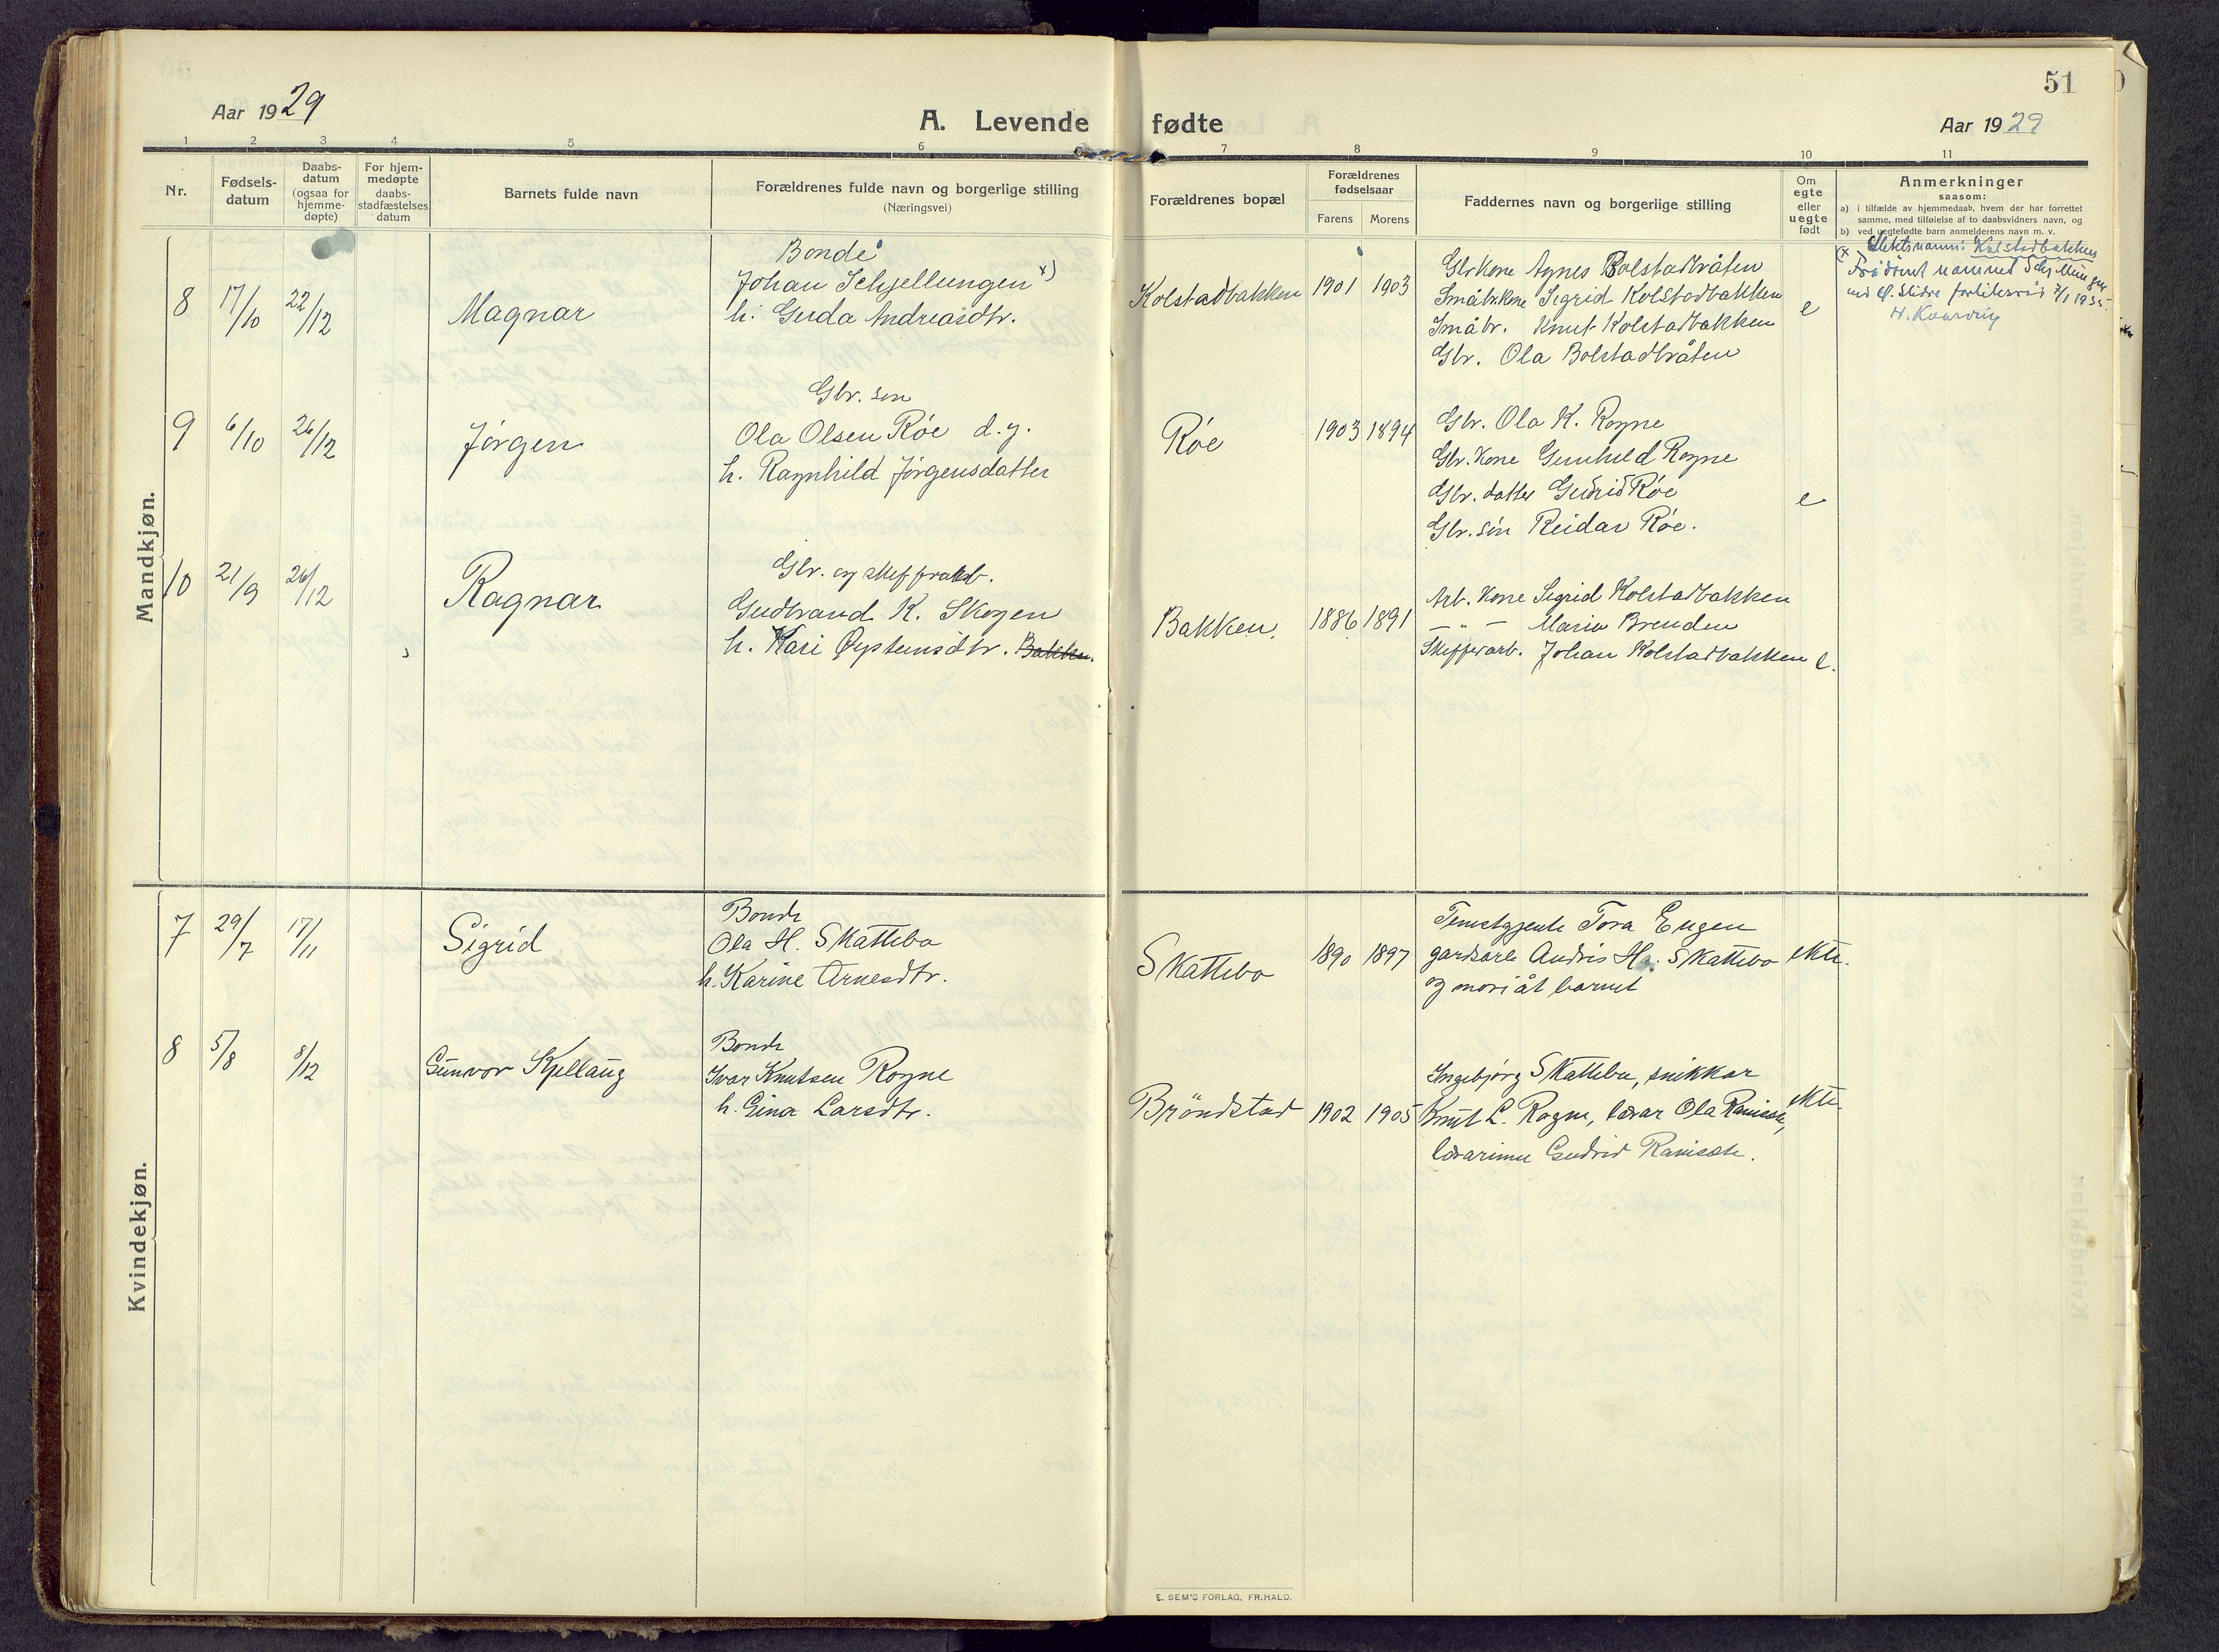 51
Aar 1929
A. Levende fødte
Aar 1929
1 2 3 4 5 6 7 8 9 10 11
Nr.
Fødsels-
datum
Daabs-
datum
(ogsaa for
hjemme-
døpte)
For hjem-
medøpte
daabs-
stadfæstelses
datum
Barnets fulde navn
Forældrenes fulde navn og borgerlige stilling
(Næringsvei)
Forældrenes bopæl
Forældrenes
fødselsaar
Farens Morens
Faddernes navn og borgerlige stilling
Om
egte
eller
uegte
født
Anmerkninger
saasom:
a) i tilfælde av hjemmedaab, hvem der har forrettet
samme, med tilføielse av to daabsvidners navn, og
b) ved uegtefødte barn anmelderens navn m. v.
Mandkjøn.
8 17/10 22/12 Magnar
Bonde
Johan Schjellungen x)
h. Gerda Andreasdtr.
Kolstadbakken 1901 1903
Gbrkone Agnes Bolstadbråten
Småbr.kone Sigrid Kolstadbakken
Småbr. Knut Kolstadbakken
Gbr. Ola Bolstadbråten
e
x) Slektsnamn: Kolstadbakken
Frådømt namnet Schjellungen
ved Ø. Slidre forliksråd 7/1 1935.
9 6/10 26/12 Jörgen
Gbr. sön
Ola Olsen Röe d.y.
h. Ragnhild Jörgensdatter
Röe 1903 1894
Gbr. Ola K. Rogne
Gbr. kone Gunhild Rogne
Gbr. datter Gudrid Röe
Gbr. sön Reidar Röe.
e
10 21/9 26/12 Ragnar
Gbr. og skifferarb.
Gudbrand K. Skogen
h. Kari Øysteinsdtr. Bakken.
Bakken. 1886 1891
Arb. kone Sigrid Kolstadbakken
— " — Maria Brenden
Skifferarb. Johan Kolstadbakken
e.
Kvindekjøn.
7 29/7 17/11 Sigrid
Bonde
Ola H. Skattebo
h. Karine Arnesdtr.
Skattebo 1890 1897
Tenestgjente Tora Eugen
gardsarb Andris Ha. Skattebo
og mori åt barnet
ekte.
8 5/8 8/12 Gunvor Kjellaug
Bonde
Ivar Knutsen Rogne
h. Gina Larsdtr.
Bröndstad 1902 1905
Ingebjörg Skattebu, snikkar
Knut L. Rogne, lærar Ola Ranisch,
lærarinne Gudrid Ranisch.
ekte.
E. SEM'S FORLAG, FR.HALD.